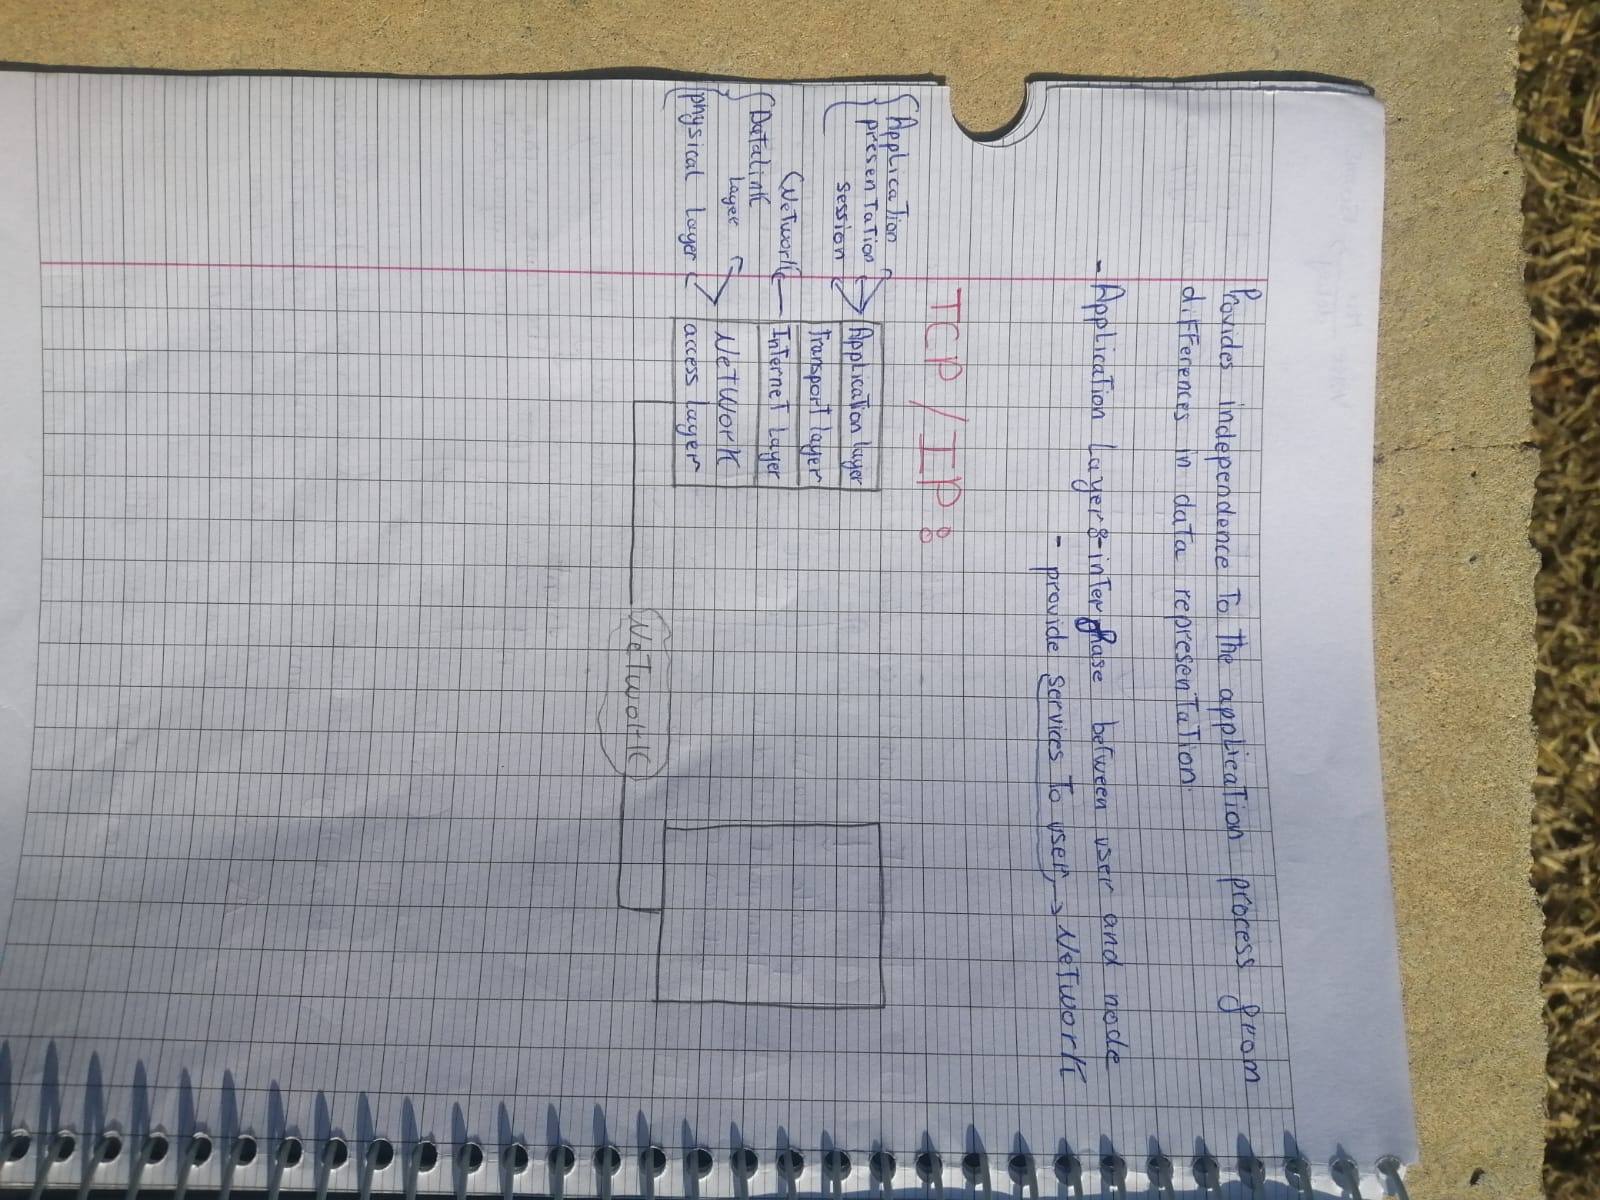 Provides independence To The application process from
differences in data representation.
- Application Layer:-interphase between user and node
- provide services To user, → Network
TCP / IP :
Application
presentation
session
Network
Datalink
Layer
physical Layer
Application layer
Transport layer
Internet Layer
Network
access layer
Network